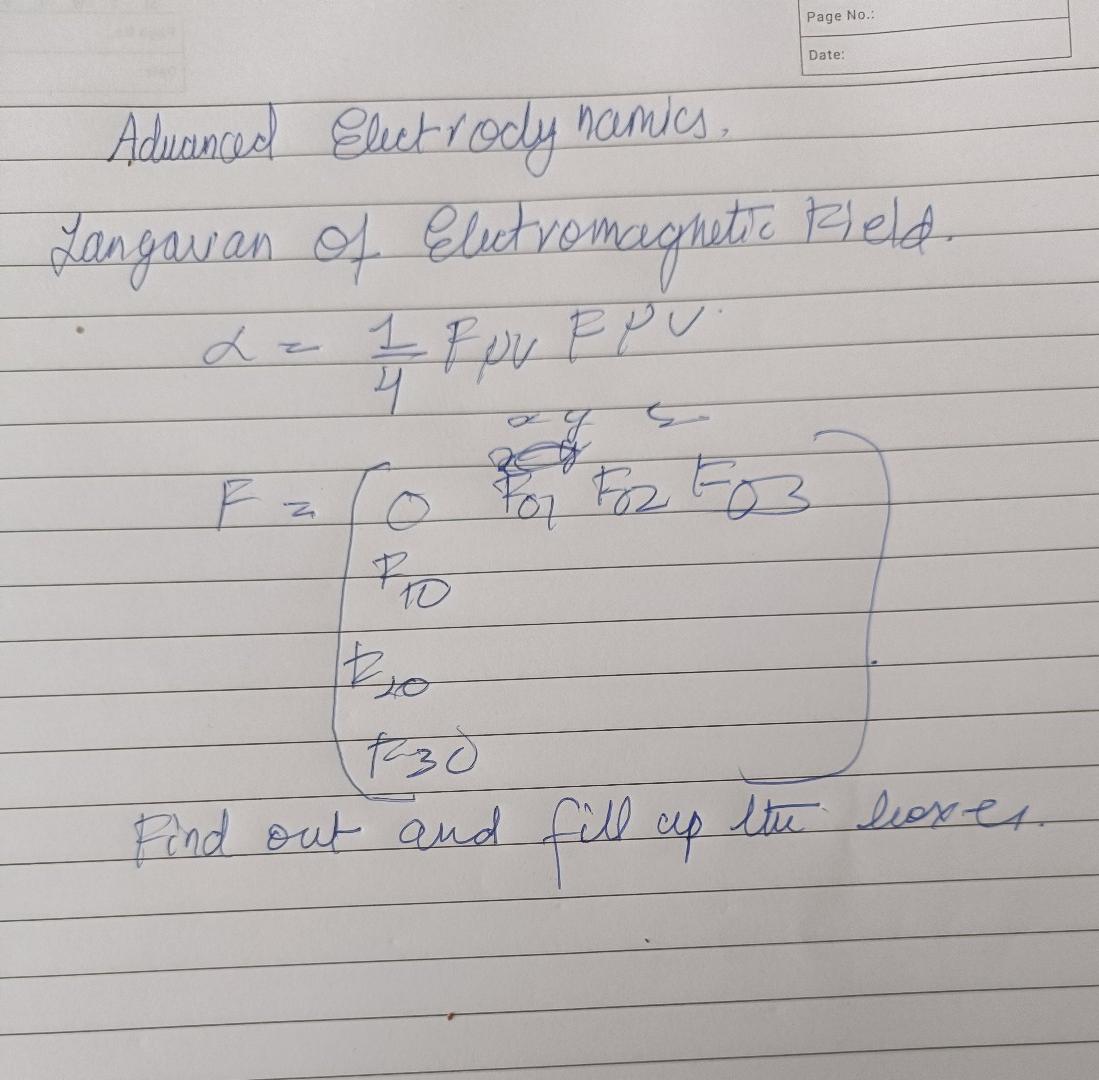 Page No.:
Date:
Advanced Electrodynamics.
Langavan of Electromagnetic Field.
α = 1/4 Fμν Fμν.
x y z
F = ( 0 F01 F02 F03
F10
F20
F30 )
Find out and fill up the boxes.